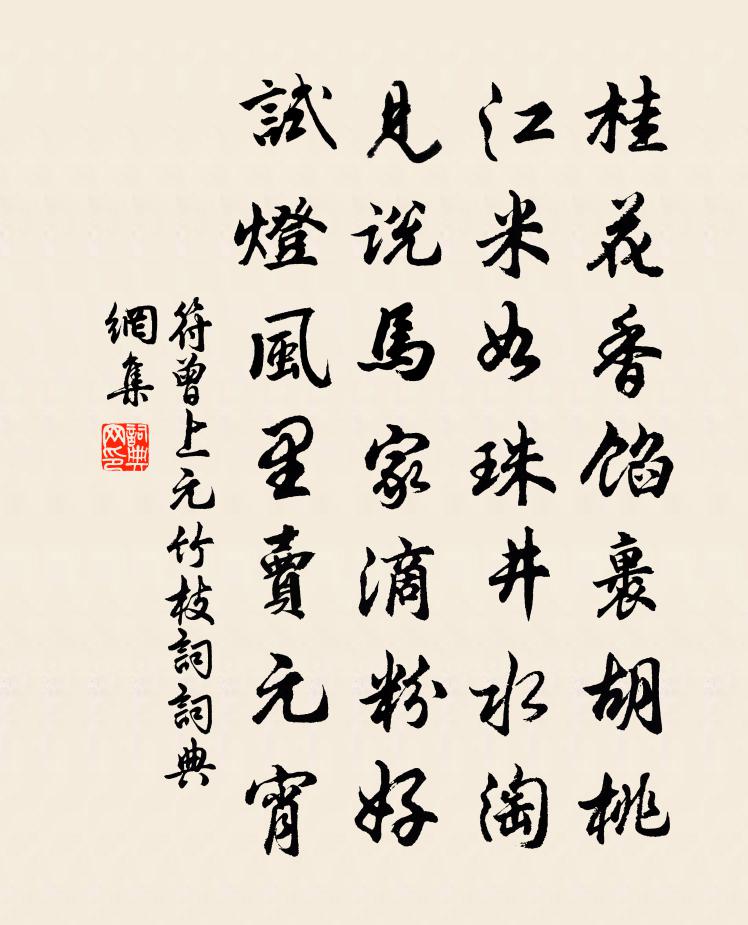 桂花香餡裹胡桃
江米如珠井水淘
見說馬家滴粉好
試燈風里賣元宵
符曾上元竹枝詞詞典
網集
詞典
网印